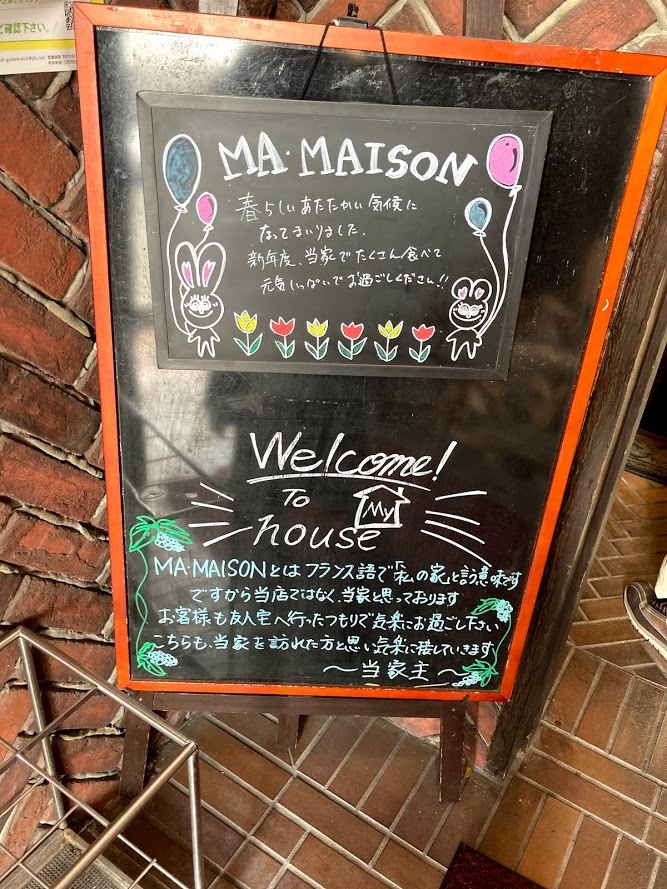 ご確認下さい。
MA・MAISON
春らしいあたたかい気候に
なってまいりました。
新年度、当家でたくさん食べて
元気いっぱいでお過ごしください!!
Welcome!
To My
house
MA・MAISONとはフランス語で「私の家」と言う意味です
ですから当店ではなく、当家と思っております
お客様も友人宅へ行ったつもりで気楽にお過ごし下さい
こちらも、当家を訪れた方と思い気楽に接していきます
〜当家主〜